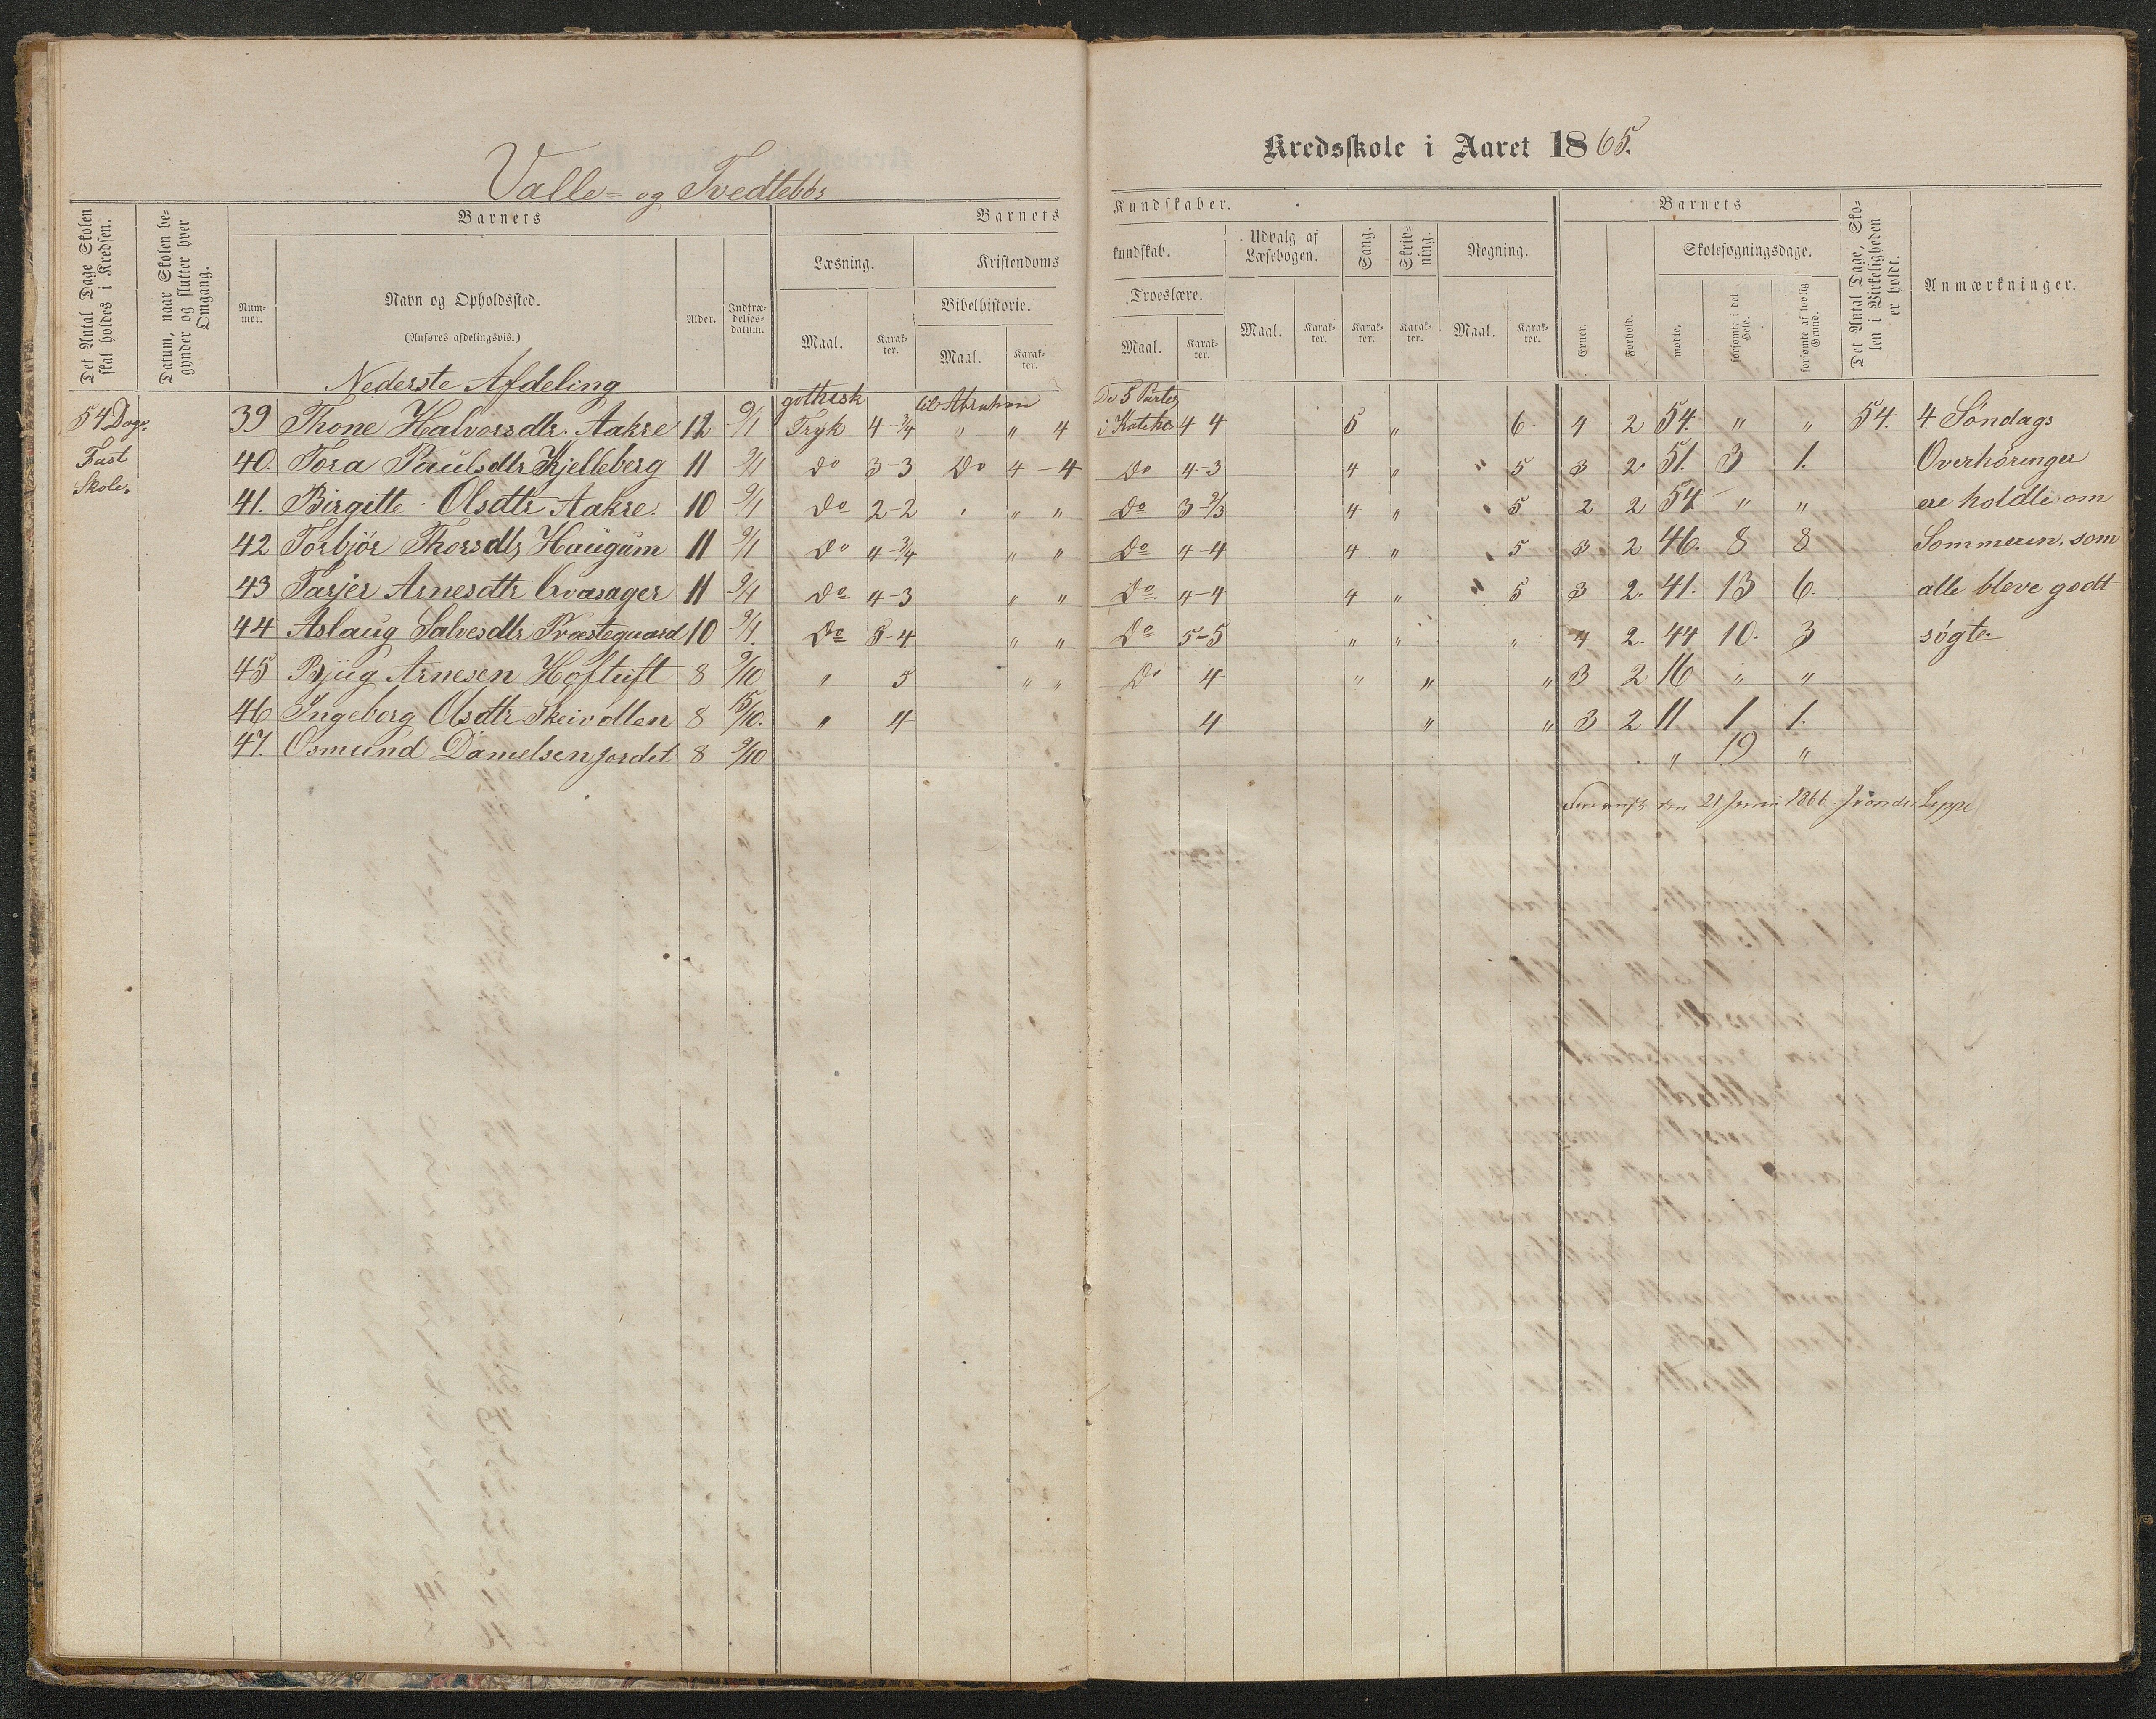 Valle- og Tvedtebøs
Kredsskole i Aaret 1865.
Det Antal Dage Skolen skal holdes i Kredsen.
Datum, naar Skolen begynder og slutter hver Omgang.
Barnets
Nummer.
Navn og Opholdssted.
(Anføres afdelingsvis.)
Alder.
Indtrædelsesdatum.
Barnets Kundskaber.
Læsning.
Maal. Karakter.
Kristendomskundskab.
Bibelhistorie.
Maal. Karakter.
Troeslære.
Maal. Karakter.
Udvalg af Læsebogen.
Maal. Karakter.
Sang.
Karakter.
Skrivning.
Karakter.
Regning.
Maal. Karakter.
Barnets
Evner.
Forhold.
Skolesøgningsdage.
mødte.
forsømte i det Hele.
forsømte af lovlig Grund.
Det Antal Dage, Skolen i Virkeligheden er holdt.
Anmærkninger.
Nederste Afdeling
54 Dage. 39 Thone Halvorsdtr. Aakre 12 9/1 gothisk Tryk 4-3/4 til Abraham " " 4 De 5 Parter i Katekes 4 4 5 " 6. 4 2 54. " " 54. 4 Söndags
Fast 40. Tora Paulsdtr Kjelleberg 11 9/1 do 3-3 Do 4-4 Do 4-3 4 " " 5 3 2. 51. 3 1. Overhöringer
Skole. 41. Birgitte Olsdtr Aakre. 10 9/1 do 2-2 " " " Do 3-2/3 4 " " 5 2 2 54 " " ere holdte om
42 Torbjör Thorsdtr Haugum 11 9/1 do 4-3/4 " " Do 4-4 4 " " 5 3. 2 46. 8 8 Sommeren, som
43 Tarjer Arnesdtr 11 9/1 do 4-3 " " Do 4-4 4 " " 5 3 2. 41. 13 6. alle bleve godt
44 Aslaug Salvesdtr Præstegaard 10 9/1. Do 5-4 " " Do 5-5 " " " 4 2. 44 10. 3 søgte.
45 Bjug Arnesen Hoftuft 8 9/10 " 5 " " Do 4 " " " 3 2 16 " "
46 Ingeborg Olsdtr 8 15/10. " 4 4 " " 3 2 11 1 1.
47. Osmund Danielsen Jordet 8 9/10 " 19 "
den 21 Juni 1866